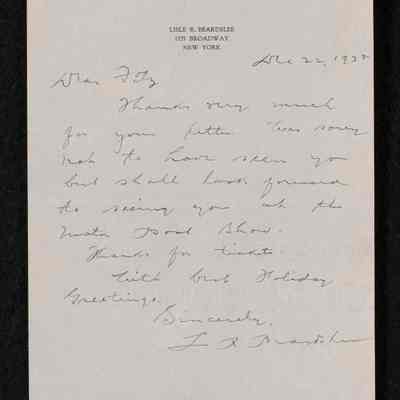 LISLE R. BEARDSLEE
1775 BROADWAY
NEW YORK
Dec 22, 1937
Dear Fitz
Thanks very much
for your letter Was sorry
not to have seen you
but shall look forward
to seeing you at the
Motor Boat Show.
Thanks for tickets.
With best Holiday
Greetings.
Sincerely,
L R Beardslee